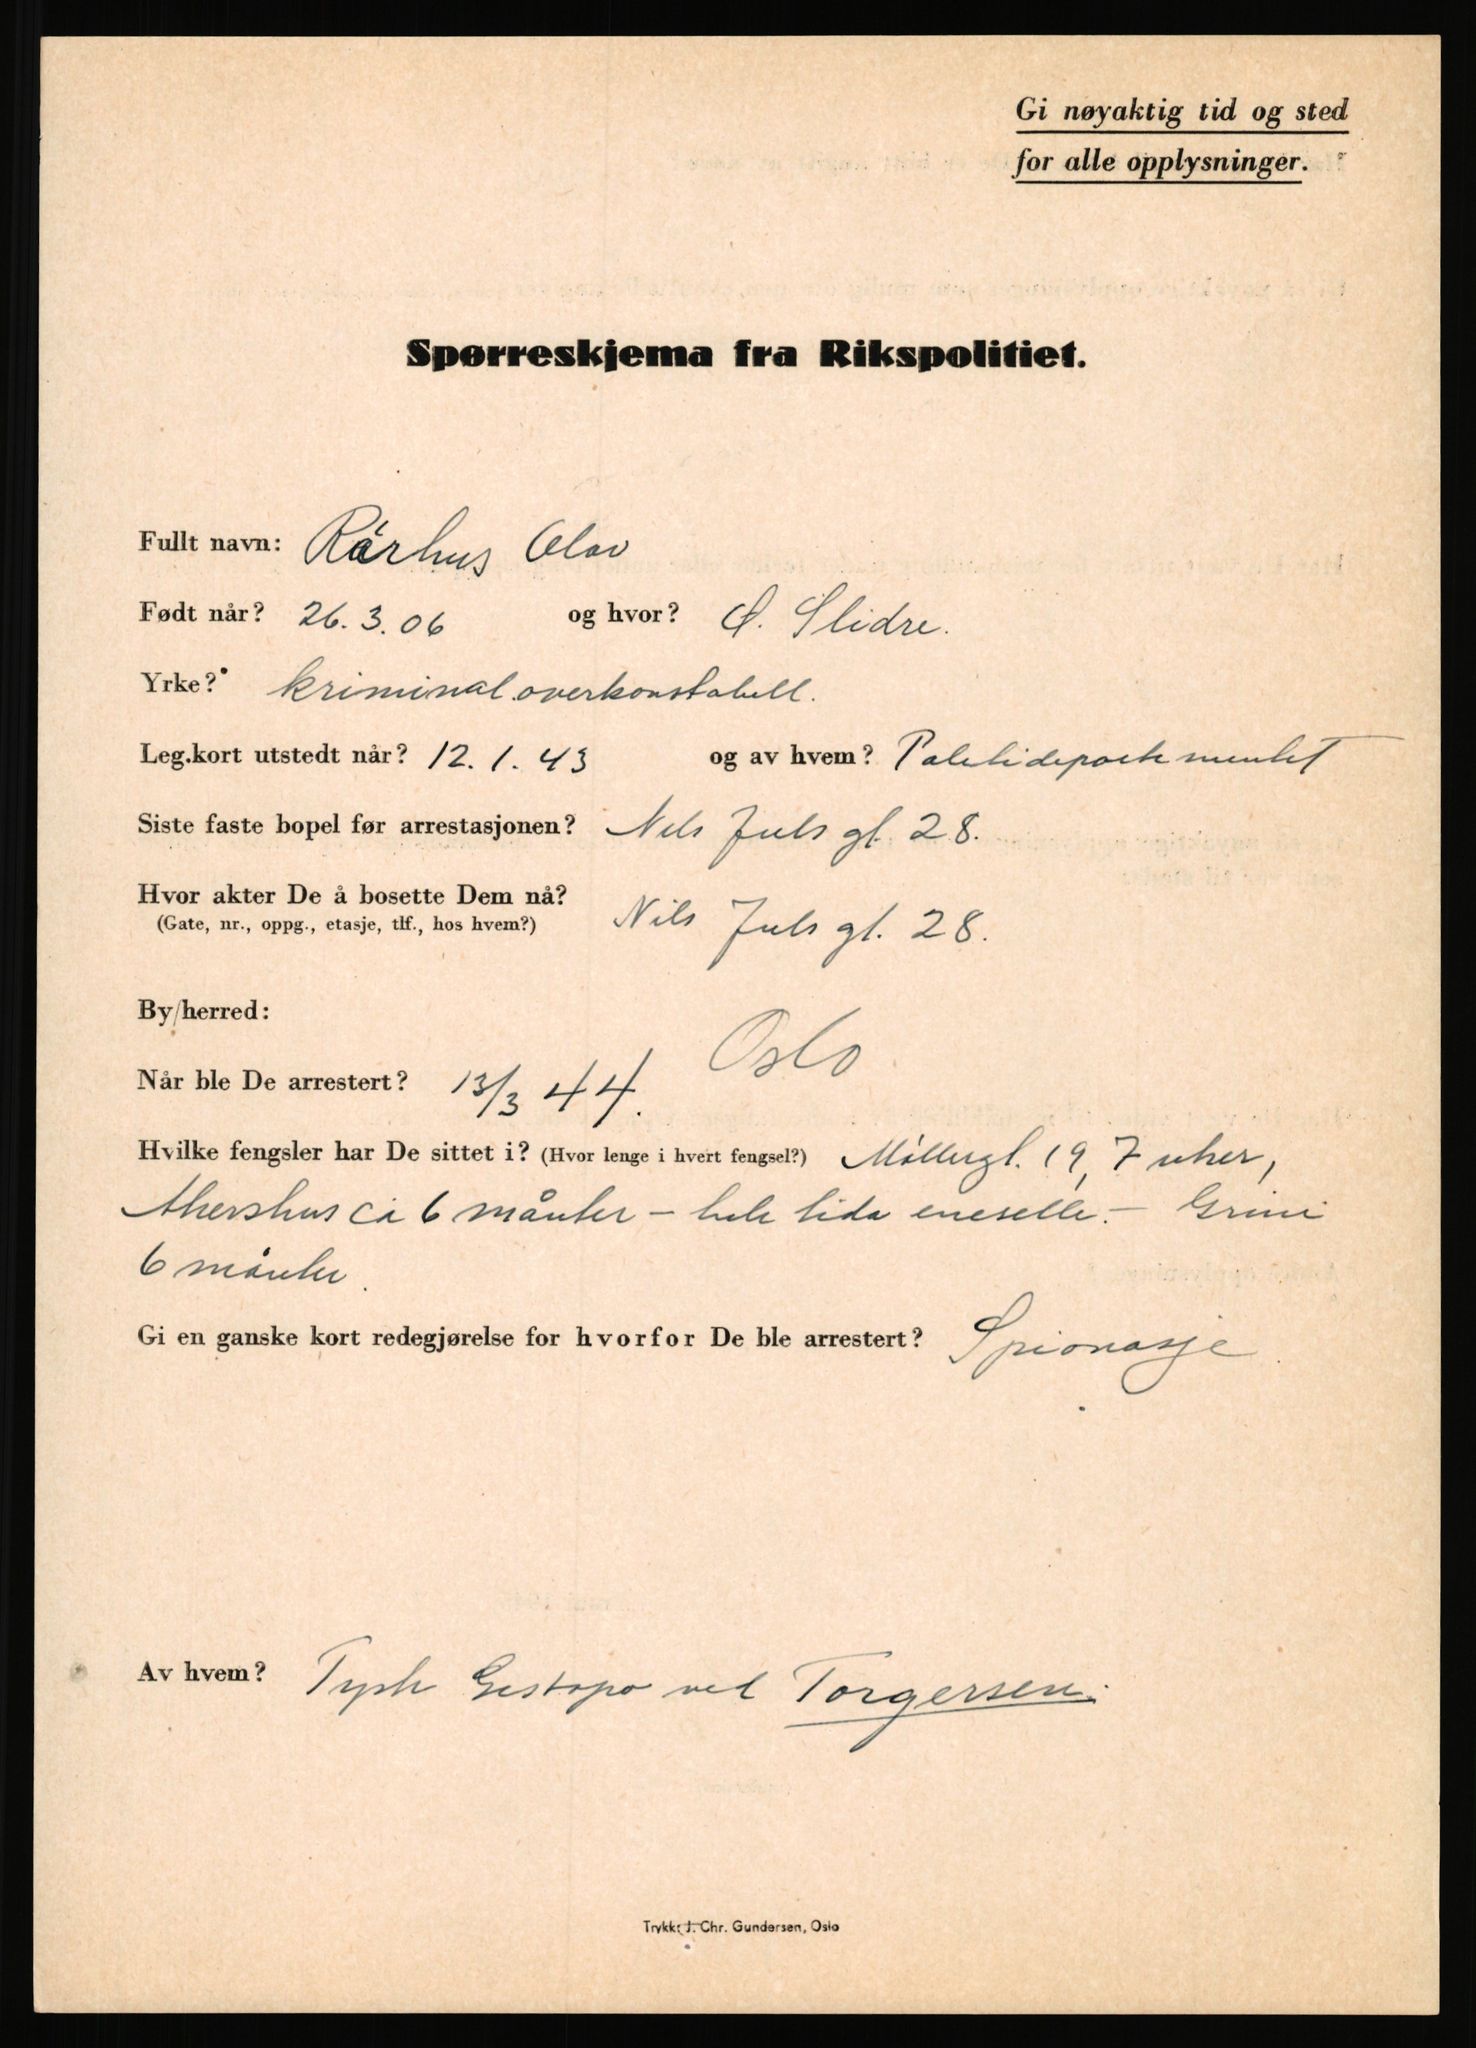 Gi nøyaktig tid og sted
for alle opplysninger.
Spørreskjema fra Rikspolitiet.
Fullt navn: Rårhus Olav
Født når? 26.3.06 og hvor? Ø. Slidre.
Yrke? kriminaloverkonstabell.
Leg.kort utstedt når? 12.1.43 og av hvem? Politidepartementet
Siste faste bopel før arrestasjonen? Nils Juls gt. 28.
Hvor akter De å bosette Dem nå? Nils Juls gt. 28.
(Gate, nr., oppg., etasje, tlf., hos hvem?)
By/herred: Oslo
Når ble De arrestert? 13/3 44.
Hvilke fengsler har De sittet i? (Hvor lenge i hvert fengsel?) Møllergt. 19, 7 uker,
Akershus ca 6 månter – hele tida enecelle. – Grini
6 månter.
Gi en ganske kort redegjørelse for hvorfor De ble arrestert? Spionasje.
Av hvem? Tysk Gestapo ved Torgersen.
Trykk: J. Chr. Gundersen, Oslo